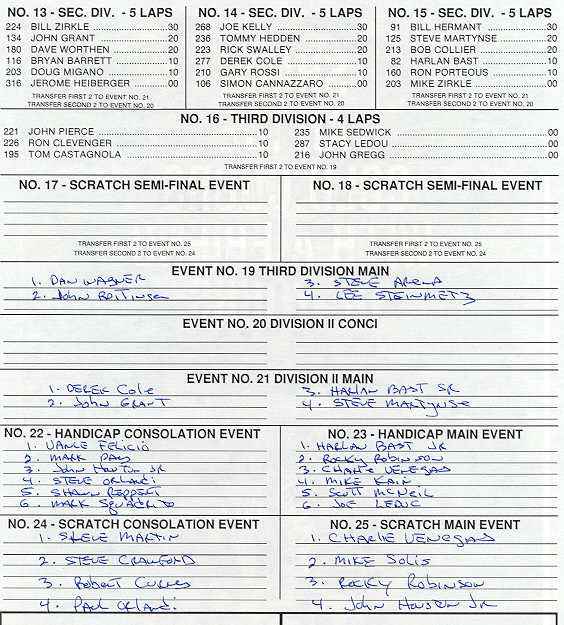 NO. 13 - SEC. DIV. - 5 LAPS
224 BILL ZIRKLE 30
134 JOHN GRANT 20
180 DAVE WORTHEN 20
116 BRYAN BARRETT 10
203 DOUG MIGANO 10
316 JEROME HEIBERGER 00
TRANSFER FIRST 2 TO EVENT NO. 21
TRANSFER SECOND 2 TO EVENT NO. 20
NO. 14 - SEC. DIV. - 5 LAPS
268 JOE KELLY 30
236 TOMMY HEDDEN 20
223 RICK SWALLEY 20
277 DEREK COLE 10
210 GARY ROSSI 10
106 SIMON CANNAZZARO 00
TRANSFER FIRST 2 TO EVENT NO. 21
TRANSFER SECOND 2 TO EVENT NO. 20
NO. 15 - SEC. DIV. - 5 LAPS
91 BILL HERMANT 30
125 STEVE MARTYNSE 20
213 BOB COLLIER 20
82 HARLAN BAST 10
160 RON PORTEOUS 10
203 MIKE ZIRKLE 00
TRANSFER FIRST 2 TO EVENT NO. 21
TRANSFER SECOND 2 TO EVENT NO. 20
NO. 16 - THIRD DIVISION - 4 LAPS
221 JOHN PIERCE 10
226 RON CLEVENGER 10
195 TOM CASTAGNOLA 10
235 MIKE SEDWICK 00
287 STACY LEDOU 00
216 JOHN GREGG 00
TRANSFER FIRST 2 TO EVENT NO. 19
NO. 17 - SCRATCH SEMI-FINAL EVENT
TRANSFER FIRST 2 TO EVENT NO. 25
TRANSFER SECOND 2 TO EVENT NO. 24
NO. 18 - SCRATCH SEMI-FINAL EVENT
TRANSFER FIRST 2 TO EVENT NO. 25
TRANSFER SECOND 2 TO EVENT NO. 24
EVENT NO. 19 THIRD DIVISION MAIN
1. DAN WAGNER
2. John
3. STEVE
4. LEE STEINMETZ
EVENT NO. 20 DIVISION II CONCI
EVENT NO. 21 DIVISION II MAIN
1. DEREK Cole
2. John GRANT
3. HARLAN BAST SR
4. STEVE MARTYNSE
NO. 22 - HANDICAP CONSOLATION EVENT
1. VANCE FELICIO
2. MARK
3. John SR
4. STEVE ORLANDI
5. SHAWN
6. MARK
NO. 23 - HANDICAP MAIN EVENT
1. HARLAN BAST JR
2. ROCKY ROBINSON
3. CHARLIE VENEGAS
4. MIKE
5. SCOTT MCNEIL
6. JOE LEDUC
NO. 24 - SCRATCH CONSOLATION EVENT
1. STEVE MARTIN
2. STEVE CRAWFORD
3. Robert
4. PAUL ORLANDI
NO. 25 - SCRATCH MAIN EVENT
1. CHARLIE VENEGAS
2. MIKE SOLIS
3. ROCKY ROBINSON
4. JOHN JR